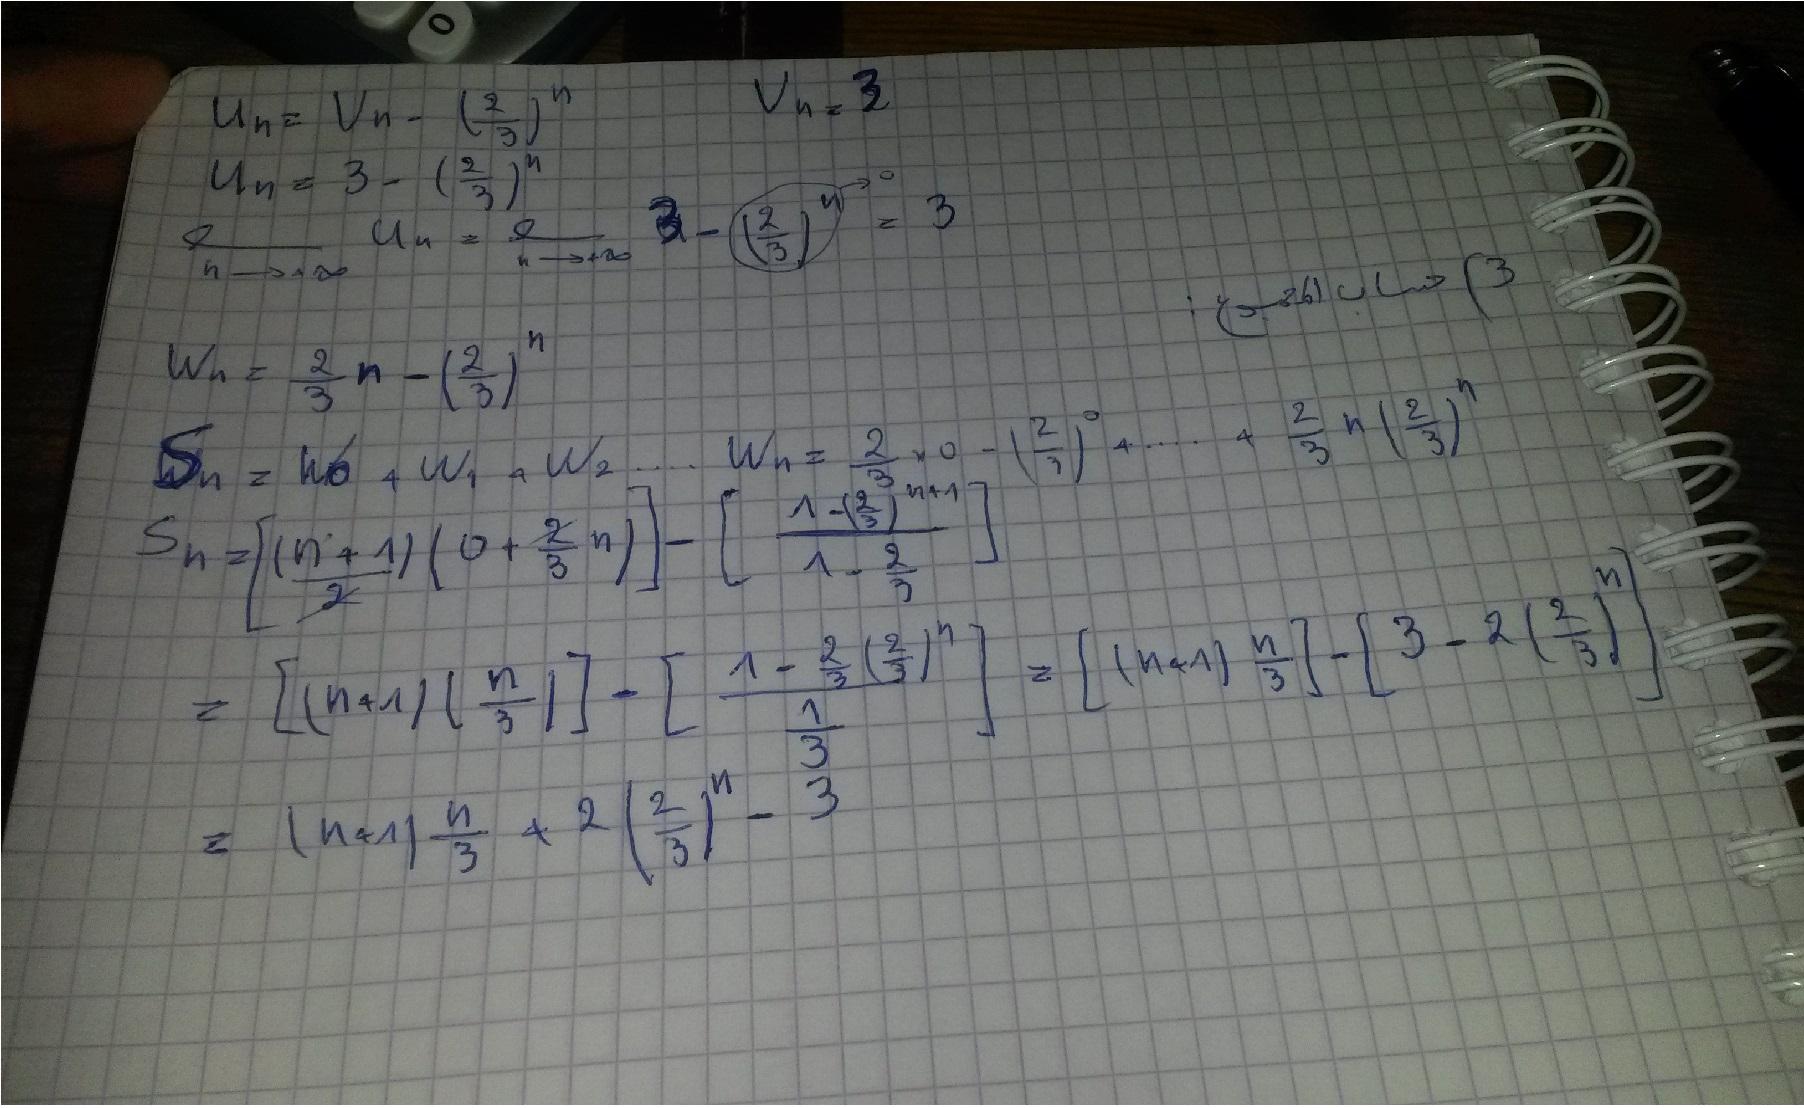 0
Un = Vn - (2/3)^n Vn = 3
Un = 3 - (2/3)^n
n → +∞ Un = n → +∞ 3 - (2/3)^n → 0 = 3
(3
Wn = 2/3 n - (2/3)^n
Sn = W0 + W1 + W2 .... Wn = 2/3 × 0 - (2/3)^0 + ..... + 2/3 n (2/3)^n
Sn = [(n+1)/2 (0 + 2/3 n)] - [(1 - (2/3)^(n+1)) / (1 - 2/3)]
= [(n+1)(n/3)] - [(1 - 2/3 (2/3)^n) / (1/3)] = [(n+1) n/3] - [3 - 2(2/3)^n]
= (n+1) n/3 + 2(2/3)^n - 3